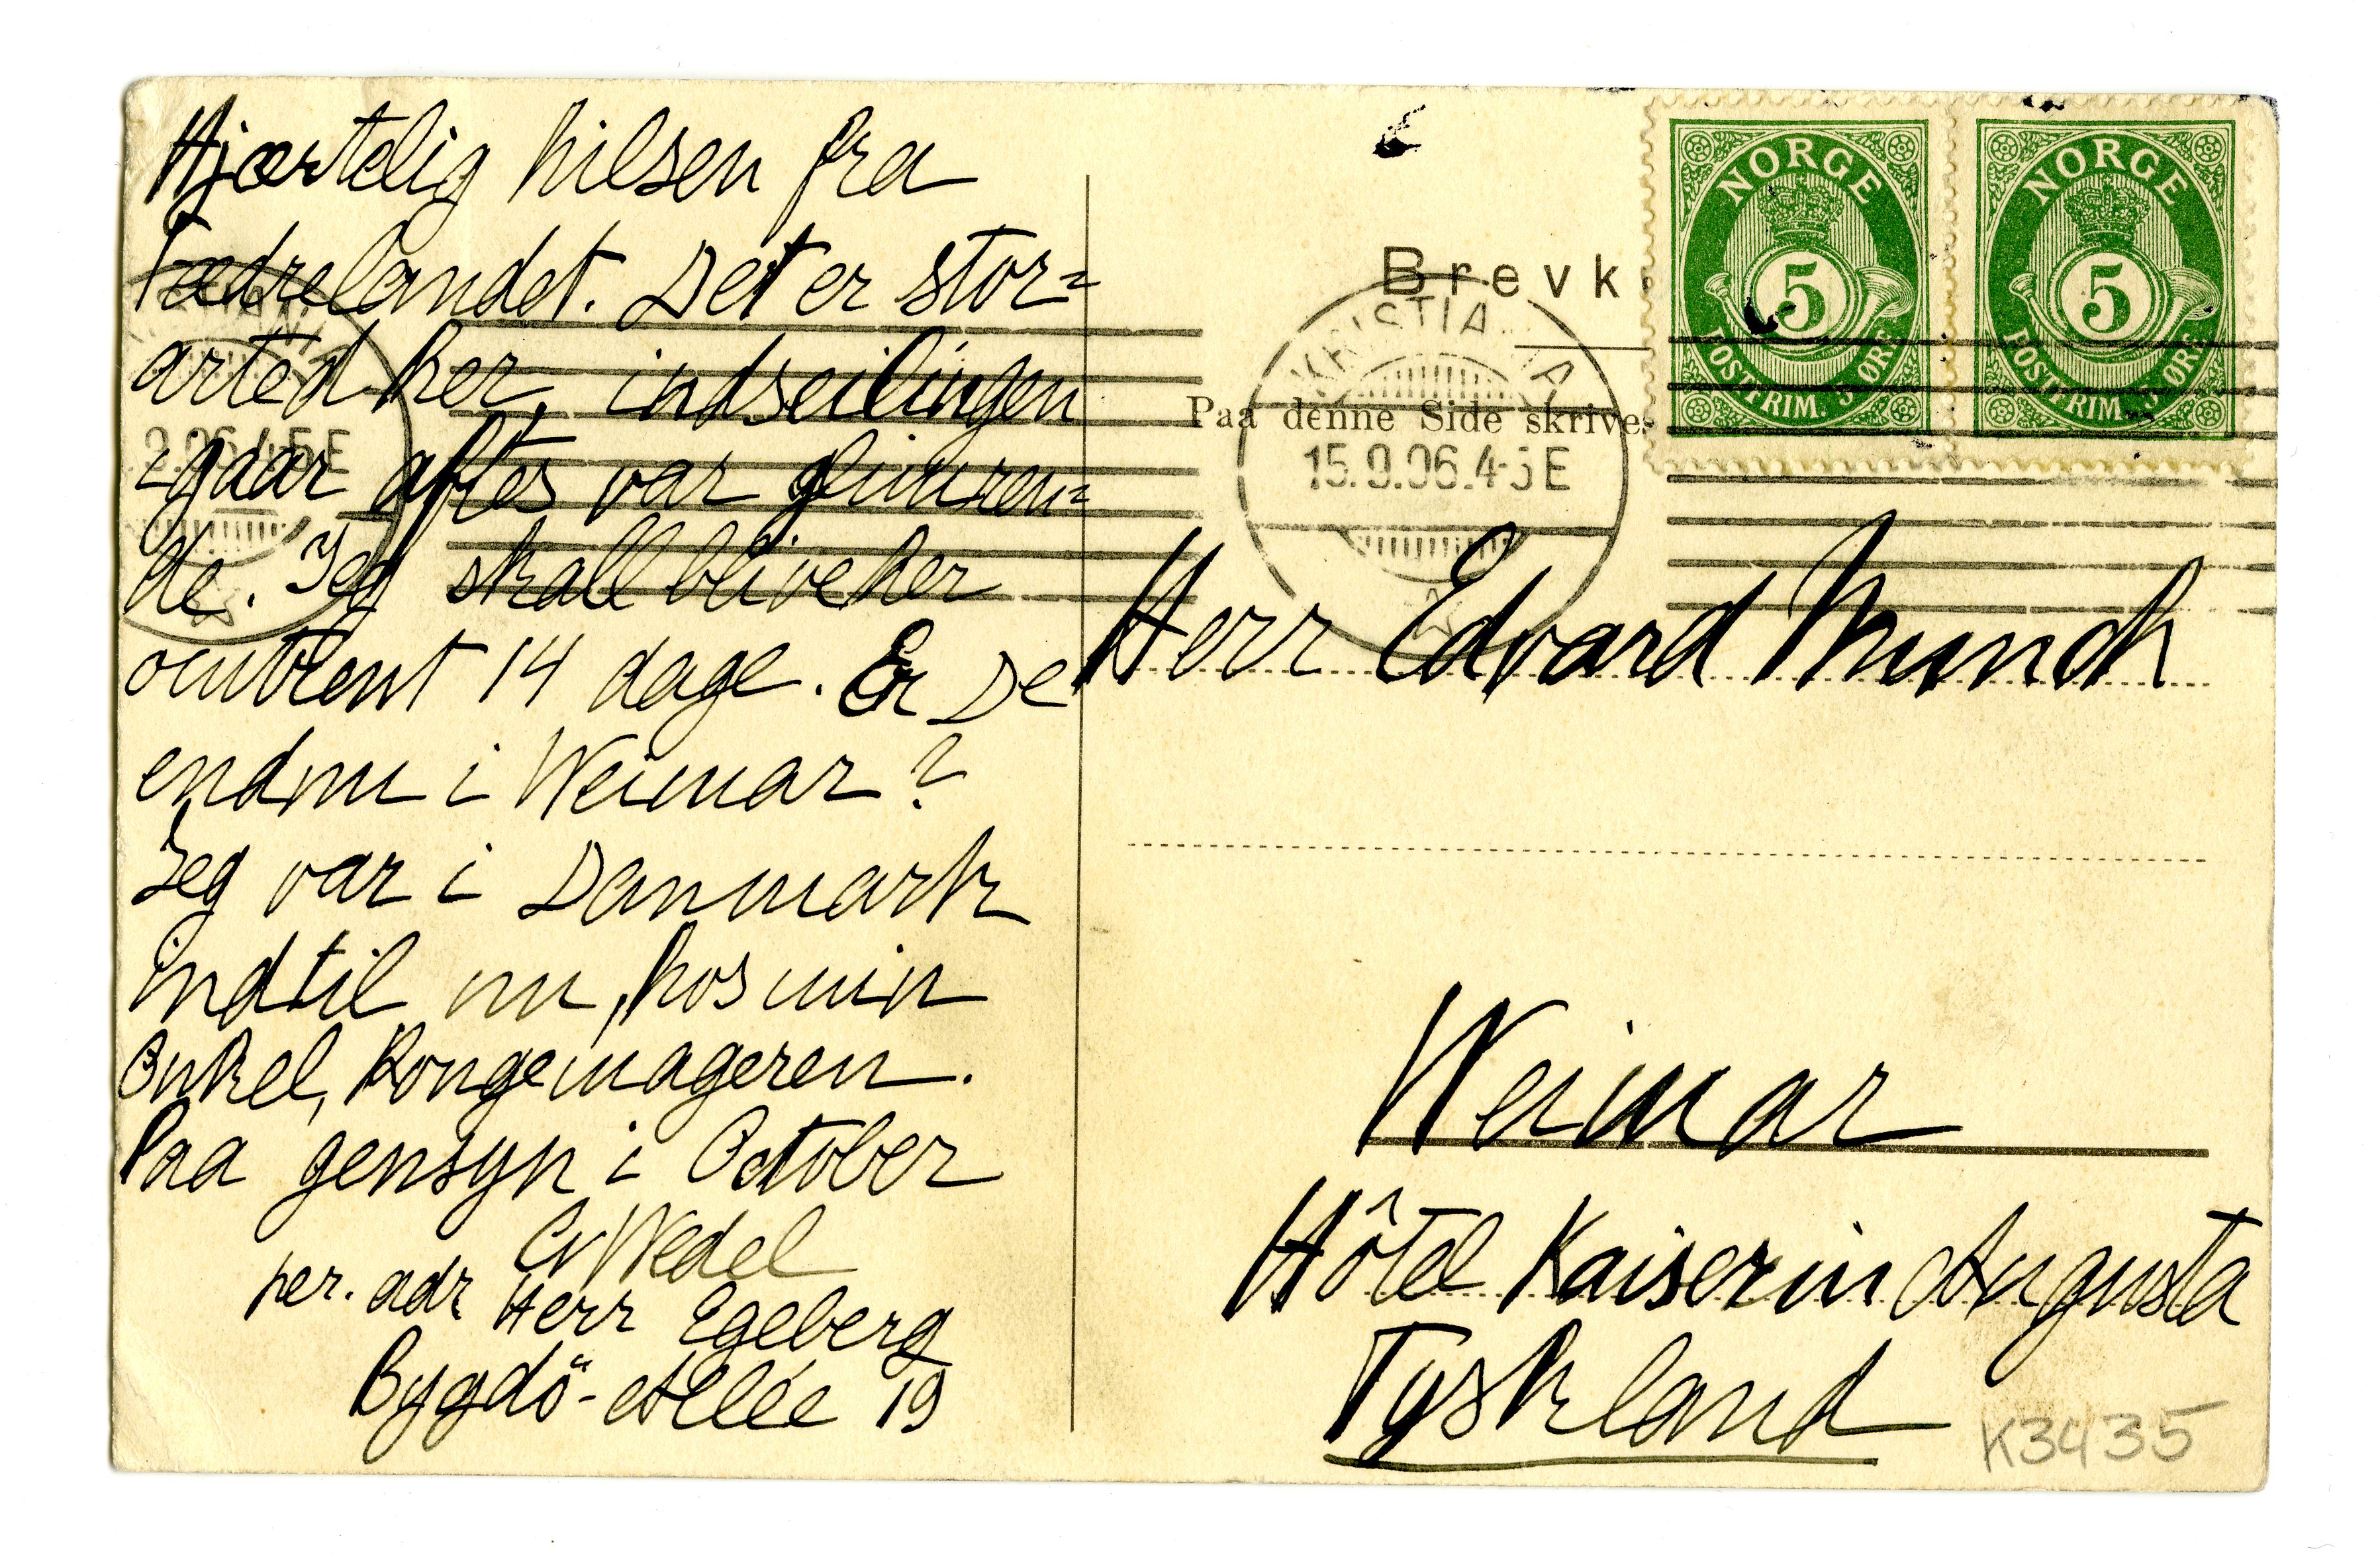 Hjærtelig hilsen fra
Fædrelandet. Det er stor=
arted her, indseilingen
igaar aftes var glimren=
de. Jeg skall blive her
omtrent 14 dage. Er De
endnu i Weimar?
Jeg var i Danmark
indtil nu, hos min
Onkel, Kongemageren.
Paa gensyn i October
Wedel
per. adr Herr Egeberg
Bygdö-Allée 19
Brevk
Paa denne Side skrive
NORGE
5
POSTFRIM. 5 ØRE
NORGE
5
POSTFRIM. 5 ØRE
KRISTIANIA
15.9.06.4-5E
Herr Edvard Munch
Weimar
Hôtel Kaiserin Augusta
Tyskland
K3435